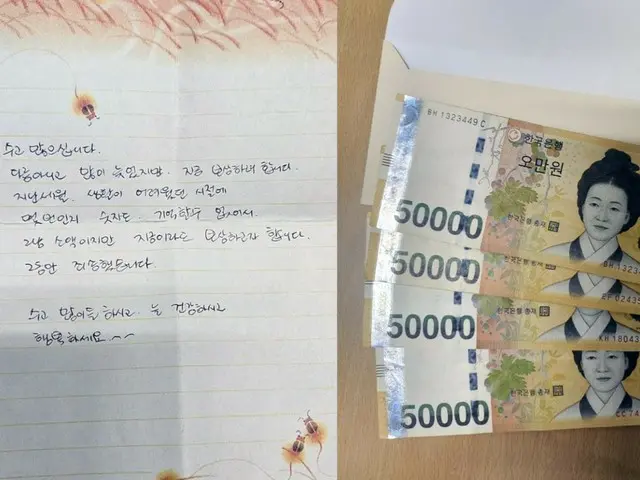 수고 많으십니다.
다름아니고 많이 늦었지만. 지금 보상하려 합니다.
지난세월. 생활이 어려웠던 시절에
몇번인지 숫자도. 기억할수 없어서.
그냥 소액이지만 지금이라도 보상하고자 합니다.
그동안 죄송했습니다.
수고 많이들 하시고. 늘 건강하시고
행복하세요 ~~
BH 1323449 C
한국은행
오만원
한국은행 총재
50000
BH 1323
50000
한국은행 총재
50000
KH 18043
한국은행 총재
50000